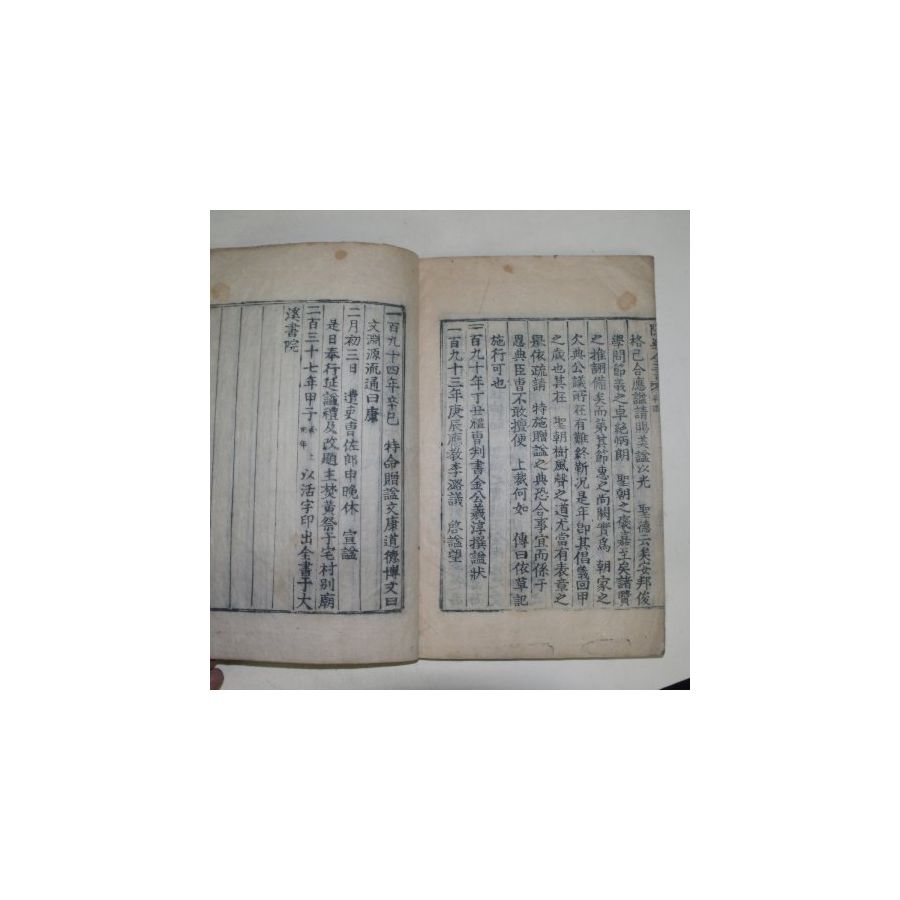 格已合應諡請賜美諡以光 聖德云矣安邦俊
學問節義之卓絶炳朗 聖朝之褒嘉至矣諸賢
之推詡備矣而第其節惠之尚闕實爲 朝家之
欠典公議所在有難終靳况是年卽其倡義回甲
之歲也其在 聖朝樹風聲之道尤當有表章之
擧依疏請 特施贈諡之典恐合事宜而係于
恩典臣曹不敢擅便 上裁何如 傳曰依草記
施行可也
一百九十年丁丑禮曹判書金公羲淳撰諡狀
一百九十三年庚辰應敎李潞議 啓諡望
一百九十四年辛巳 特命贈諡文康道德博文曰
文淵源流通曰康
二月初三日 遣吏曹佐郎申晚休 宣諡
是日奉行延諡禮及改題主焚黃祭于宅村別廟
二百三十七年甲子 元年 以活字印出全書于大
溪書院